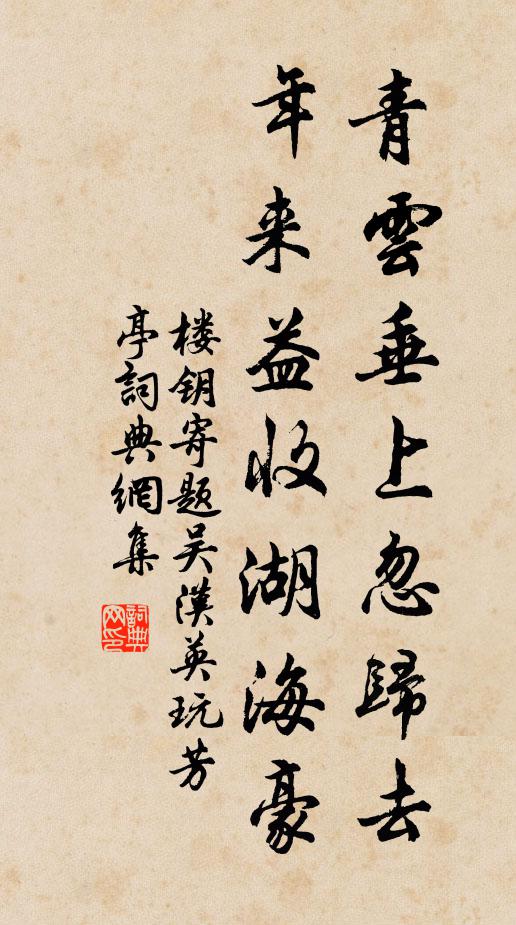 青雲垂上忽歸去
年来益收湖海豪
楼钥寄题吴漢英玩芳
亭詞典網集
詞典网印